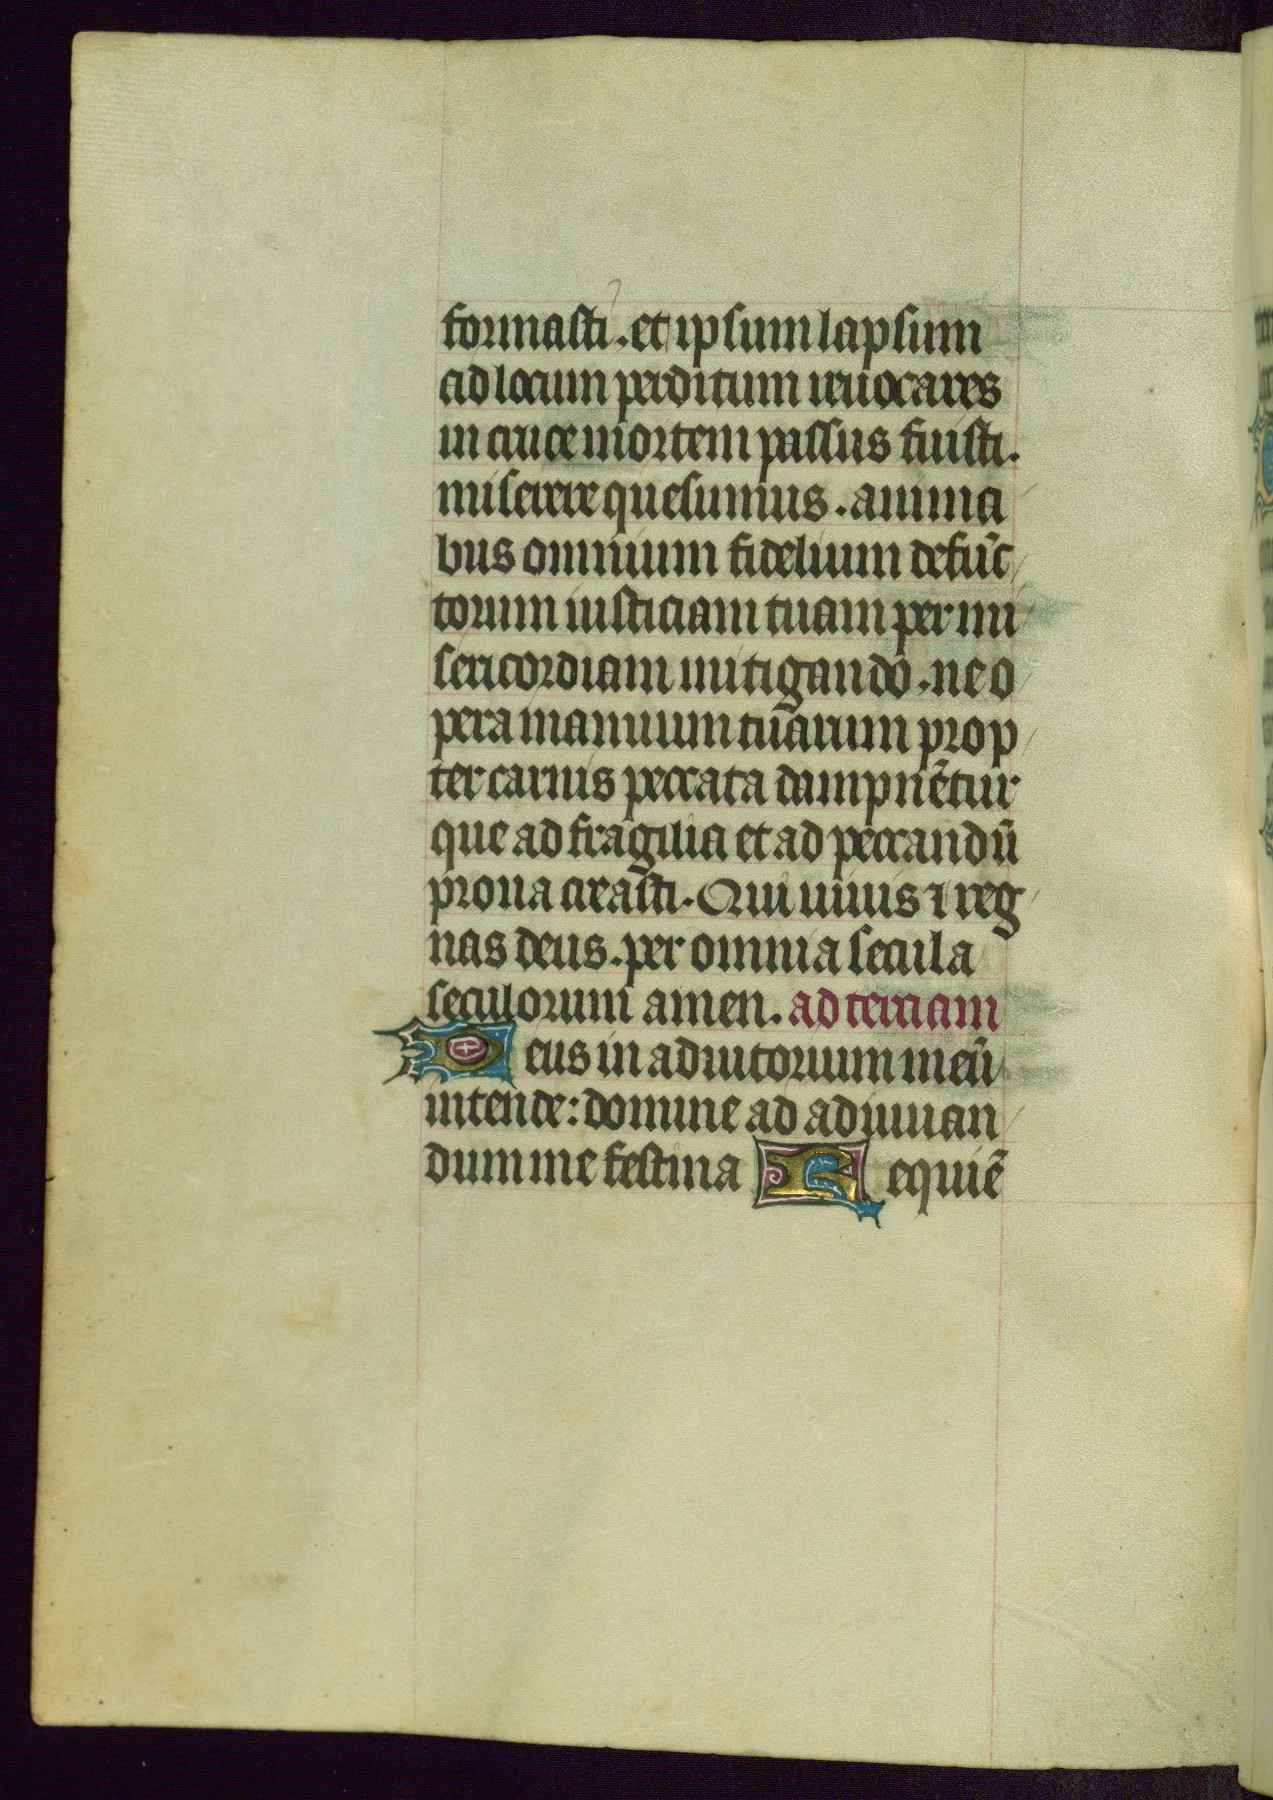 formasti. et ipsum lapsum
ad locum perditum reuocares
in cruce mortem passus fuisti.
miserere quesumus. anima
bus omnium fidelium defūc
torum iusticiam tuam per mi
sericordiam mitigando. ne o
pera manuum tuarum prop
ter carnis peccata dampnētur
que ad fragilia et ad peccandū
prona creasti. Qui uiuis ⁊ reg
nas deus. per omnia secula
seculorum amen. ad terciam
Deus in adiutorium meū
intende: domine ad adiuuan
dum me festina Requiē